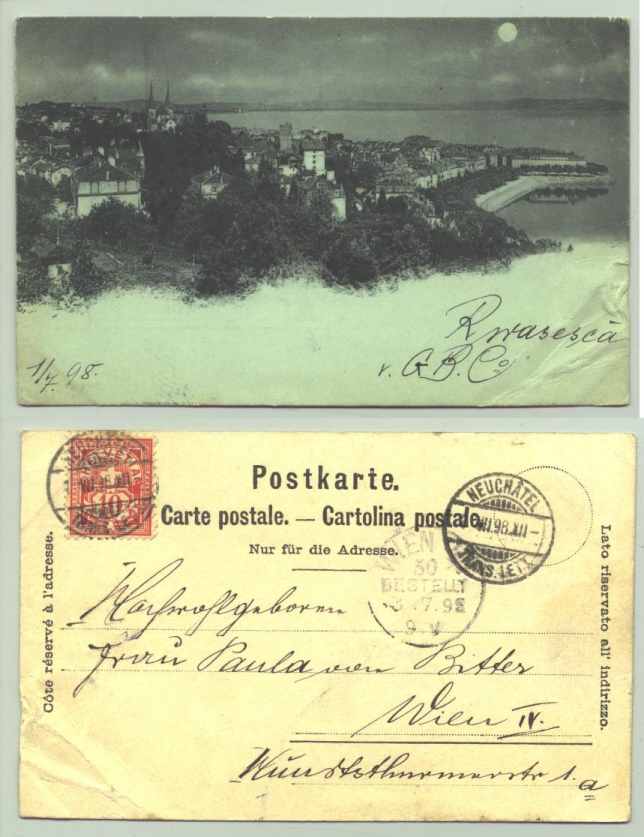 1/7 98.
v. G. B. Co
Postkarte.
Carte postale. — Cartolina postale.
Nur für die Adresse.
Côte réservé à l'adresse.
Lato riservato all' indirizzo.
HELVETIA
10
NEUCHÂTEL
VII.98.XII-
WIEN
50
BESTELLT
3.7.98
9.V
Hochwohlgeboren
Frau Paula von Bitter
Wien IV.
1.a